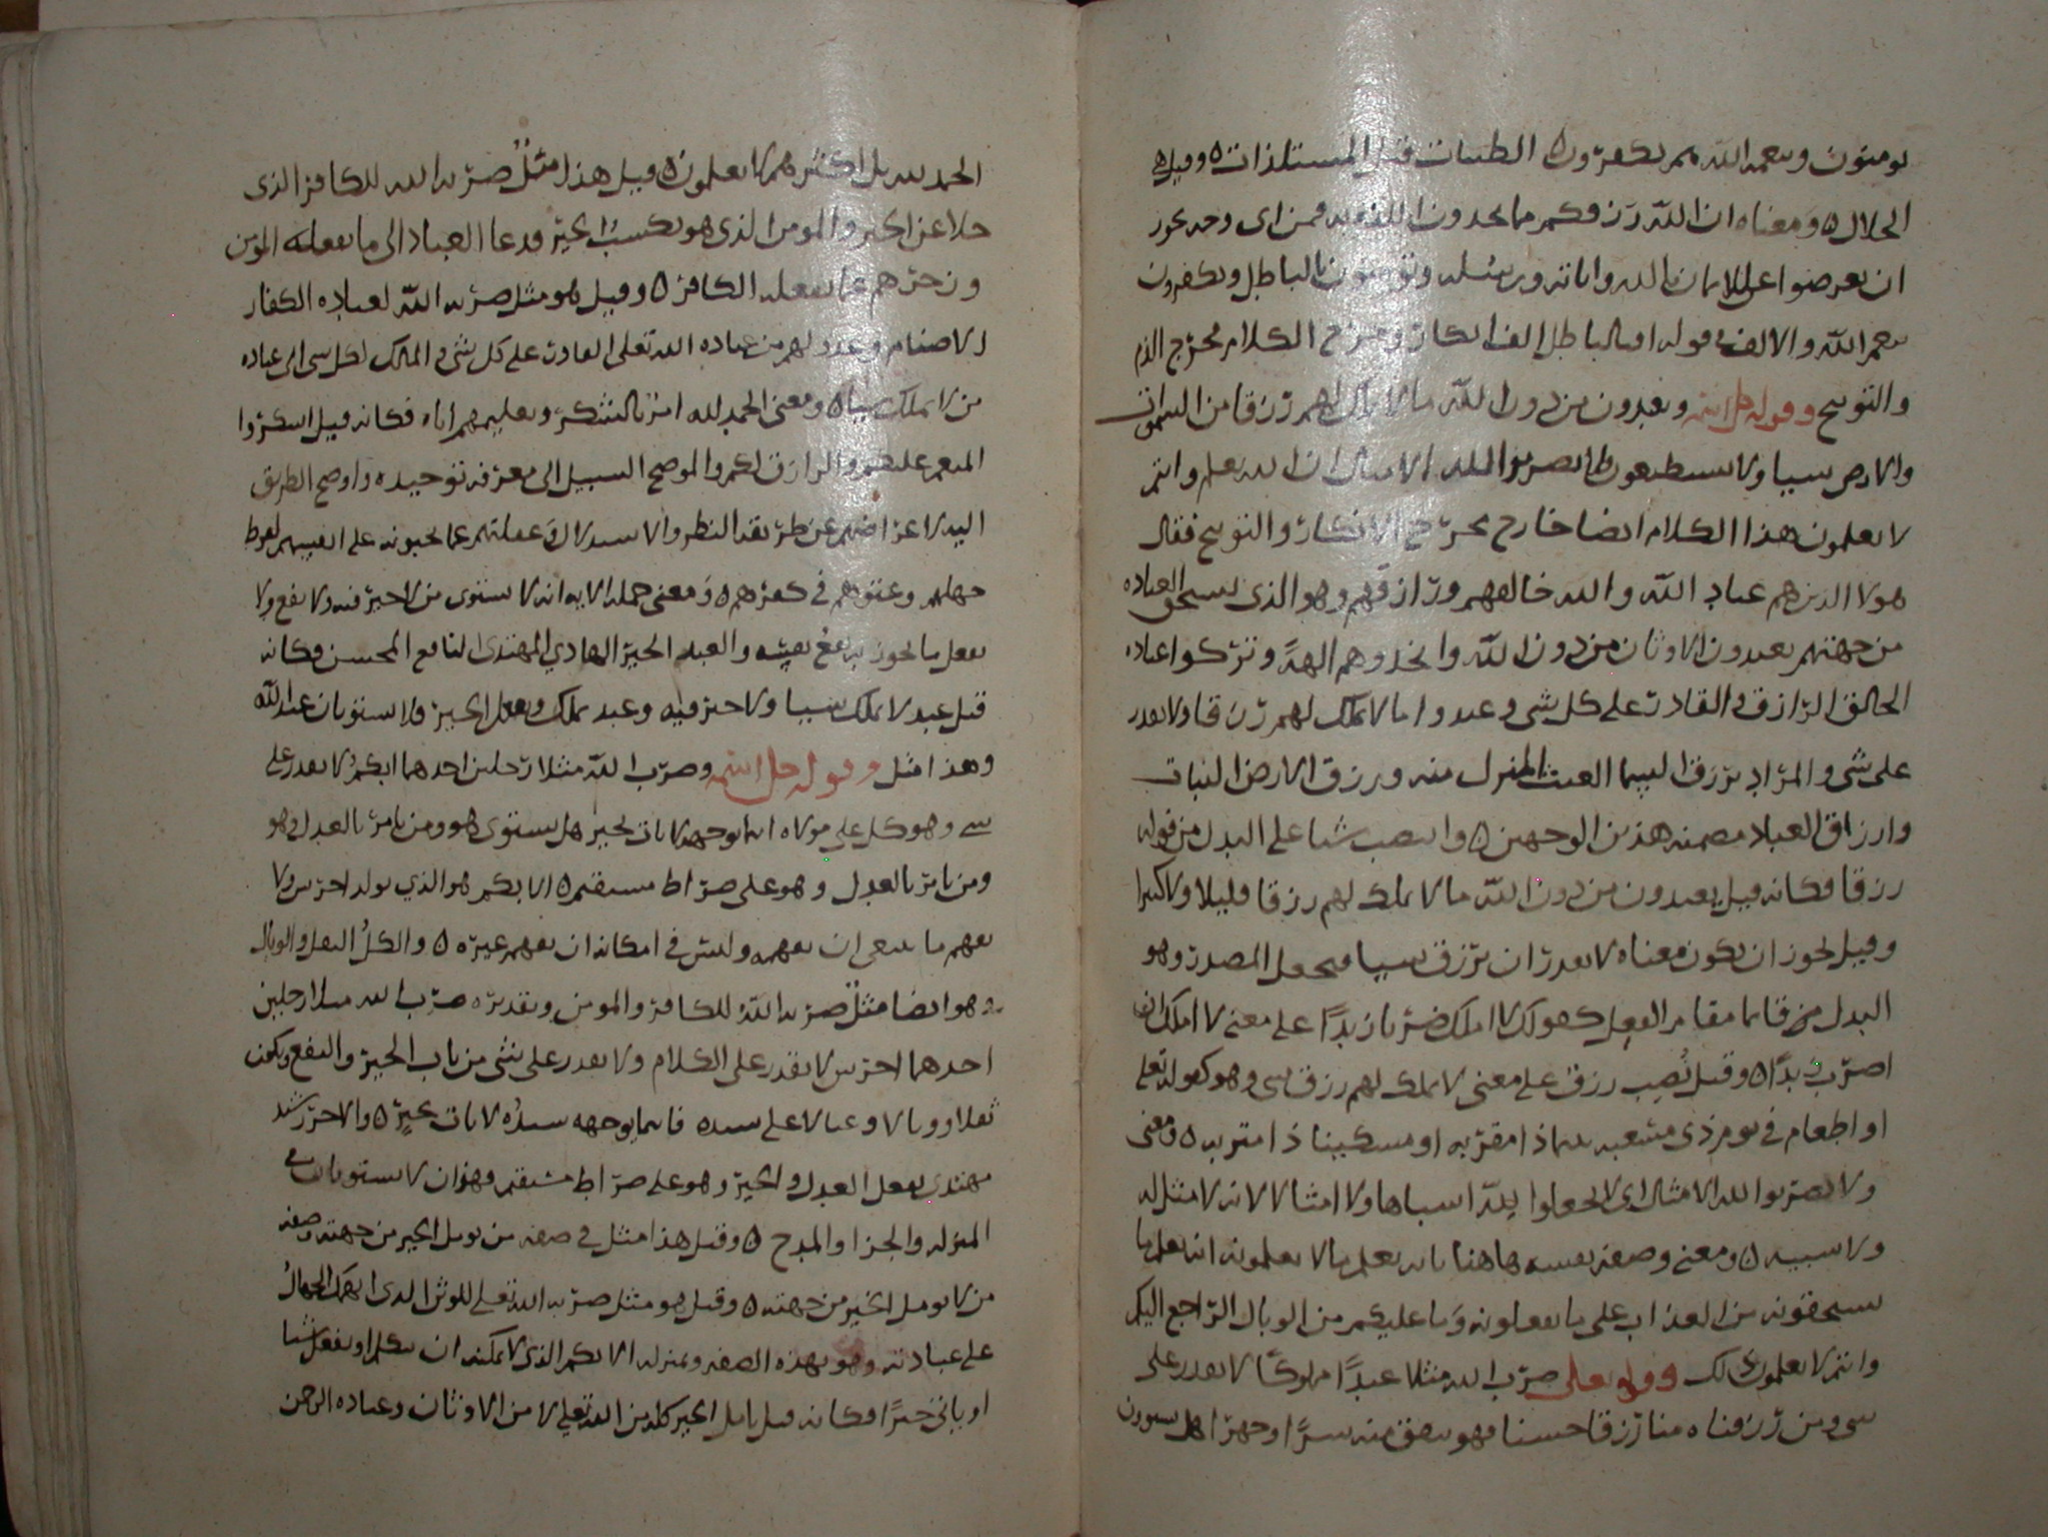 يومنون وبنعمه الله هم يكفرون ٥ الطيبات قيل المستلذات ٥ وقيل هي
الحلال ٥ ومعناه ان الله رزقكم ما تجدون اللذه به فمن اي وجه يجوز
ان يعرضوا على الايمان بالله واياته ورسله ويومنون بالباطل ويكفرون
بنعم الله والالف في قوله افبالباطل الف انكار ومخرج الكلام مخرج الذم
والتوبيخ وقوله جل اسمه ويعبدون من دون الله ما لا يملك لهم رزقا من السموات
والارض شيا ولا يستطيعون فلا تضربوا لله الامثال ان الله يعلم وانتم
لا تعلمون هذا الكلام ايضا خارج مخرج الانكار والتوبيخ فقال
هولا الذين هم عباد الله والله خالقهم ورازقهم وهو الذي يستحق العباده
من جهتهم يعبدون الاوثان من دون الله واتخذوهم الهة وتركوا عباده
الخالق الرازق والقادر على كل شي وعبدوا ما لا يملك لهم رزقا ولا يقدر
على شي والمراد برزق السما الغيث المنزل منه ورزق الارض النبات
وارزاق العباد مضمنه هذين الوجهين ٥ وانتصب شيا على البدل من قوله
رزقا فكانه قيل يعبدون من دون الله ما لا يملك لهم رزقا قليلا ولا كثيرا
وقيل يجوز ان يكون معناه لا يقدر ان يرزق شيا فيجعل المصدر وهو
البدل من قايما مقام الفعل كقولك لا املك ضربا زيدًا على معنى لا املك ان
اضرب زيدًا ٥ وقيل نُصِب رزق على معنى لا يملك لهم رزق شي وهو كقوله تعلى
او اطعام في يوم ذي مسغبه يتيما ذا مقربه او مسكينا ذا متربه ٥ ومعنى
ولا تضربوا لله الامثال اي لا تجعلوا لله اشباها ولا امثالا لانه لا مثل له
ولا شبيه ٥ ومعنى وصفه نفسه هاهنا بانه يعلم ما لا يعلمونه انه يعلم ما
تستحقونه من العذاب على ما تفعلونه وما عليكم من الوبال الراجع اليكم
وانتم لا تعلمون ذلك وقوله تعلى ضرب الله مثلا عبدًا مملوكًا لا يقدر على
شي ومن رزقناه منا رزقا حسنا فهو ينفق منه سرًا وجهرا هل يستوون
الحمد لله بل اكثرهم لا يعلمون ٥ قيل هذا مثلٌ ضربه الله للكافر الذي
خلا عن الخير والمومن الذي هو يكسب الخير ودعا العباد الى ما يفعله المومن
وزجرهم عما يفعله الكافر ٥ وقيل هو مثل ضربه الله لعباده الكفار
الاصنام وعدولهم عن عباده الله تعلى القادر على كل شي والمالك لكل شي الى عباده
من لا يملك شيا ٥ ومعنى الحمد لله امر بالشكر وتعليمهم اياه فكانه قيل اشكروا
المنعم عليكم والرازق لكم والموضح السبيل الى معرفه توحيده واوضح الطريق
اليه لاعراضهم عن طريقه النظر والاستدلال وغفلتهم عما يجبونه على انفسهم لفرط
جهلهم وعتوهم في كفرهم ٥ ومعنى جمله الايه انه لا يستوي من لا خير فيه ولا نفع ولا
يفعل ما يجوز به نفع نفسه والعبد الخير الهادي المهتدي النافع المحسن وكانه
قيل عبد لا يملك شيا ولا خير فيه وعبد يملك ويفعل الخير فلا يستويان عند الله
وهذا مثل وقوله جل اسمه وضرب الله مثلا رجلين احدهما ابكم لا يقدر على
شي وهو كل على مولاه اينما يوجهه لا يات بخير هل يستوي هو ومن يامر بالعدل وهو
ومن يامر بالعدل وهو على صراط مستقيم ٥ الابكم هو الذي يولد اخرس ولا
يفهم ما ينبغي ان يفهمه وليس في امكانه ان يفهم غيره ٥ والكلُ الثقل والوبال
وهو ايضا مثلٌ ضربه الله للكافر والمومن وتقديره ضرب الله مثلا رجلين
احدهما اخرس لا يقدر على الكلام ولا يقدر على شي من باب الخير والنفع ويكون
ثقلا ووبالا وعيالا على سيده فاينما يوجهه سيدُه لا يات بخيرٍ ٥ والاخر رشيد
مهتدي يفعل العدل والخير وهو على صراط مستقيم وهذان لا يستويان في
المنزله والجزا والمدح ٥ وقيل هذا مثل في صفه من يومل الخير من جهته وصفه
من لا يومل الخير من جهته ٥ وقيل هو مثل ضربه الله تعلى للوثن الذي انهمك الجهال
على عبادته وهو بهذه الصفه وبمنزله الابكم الذي لا يمكنه ان يتكلم او يفعل شيا
او ياتي خيرًا فكانه قيل يامل الخير كله من الله تعلى لا من الاوثان وعباده الرحمن